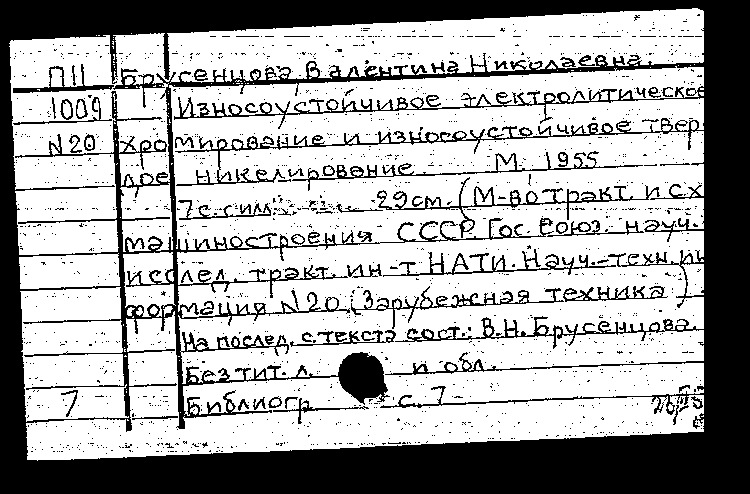 П11 Брусенцова, Валентина Николаевна.
1009 Износоустойчивое электролитическое
N20 хромирование и износоустойчивое твер-
дое никелирование. М, 1955
7 с. с илл. 29 см. (М-во тракт. и с х
машиностроения СССР. Гос. союз. науч.-
исслед. тракт. ин-т НАТИ. Науч.-техн. ин
формация N20. (Зарубежная техника)
На послед. с. текста сост.: В.Н. Брусенцова.
Без тит. л. и обл.
7 Библиогр с. 7